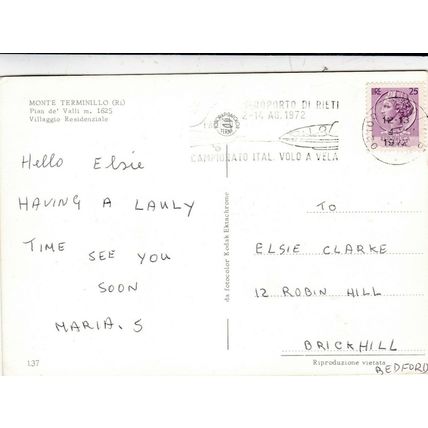 MONTE TERMINILLO (Ri)
Pian de' Valli m. 1625
Villaggio Residenziale
AEROPORTO DI RIETI
2-14 AG. 1972
CAMPIONATO ITAL. VOLO A VELA
LIRE 25
12-13
1972
Hello Elsie
HAVING A LAULY
TIME SEE YOU
SOON
MARIA. S
da fotocolor Kodak Ektachrome
TO
ELSIE CLARKE
12 ROBIN HILL
BRICKHILL
BEDFORD
137
Riproduzione vietata